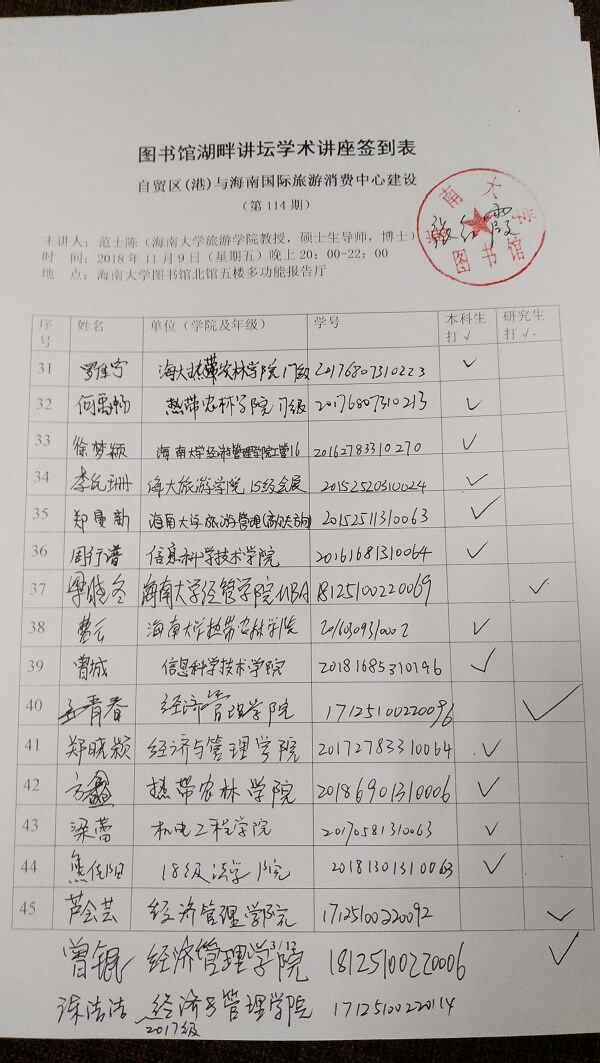 图书馆湖畔讲坛学术讲座签到表
自贸区(港)与海南国际旅游消费中心建设
(第114期)
海南大学
图书馆
主讲人：范士陈（海南大学旅游学院教授，硕士生导师，博士）
时 间：2018年11月9日（星期五）晚上20：00-22：00
地 点：海南大学图书馆北馆五楼多功能报告厅
序号 姓名 单位（学院及年级） 学号 本科生打√ 研究生打√
31 海大热带农林学院17级 20176807310223 √
32 热带农林学院17级 20176807310213 √
33 徐梦颖 海南大学经济管理学院工管16 20162783310270 √
34 海大旅游学院15级会展 20152520310024 √
35 郑曼新 海南大学旅游管理(高尔夫方向) 20152511310063 √
36 周行谱 信息科学技术学院 20161681310064 √
37 梁晓冬 海南大学经管学院MBA 18125100220069 √
38 海南大学热带农林学院 √
39 曾城 信息科学技术学院 20181685310196 √
40 青春 经济管理学院 17125100220096 √
41 郑晓颖 经济与管理学院 20172783310064 √
42 方鑫 热带农林学院 20186901310006 √
43 梁蕾 机电工程学院 20170581310063 √
44 熊任阳 18级法学院 20181301310063 √
45 芦会芸 经济管理学院 17125100220092 √
曾锟 经济管理学院 18125100220006 √
涂浩洁 经济与管理学院 17125100220114
2017级